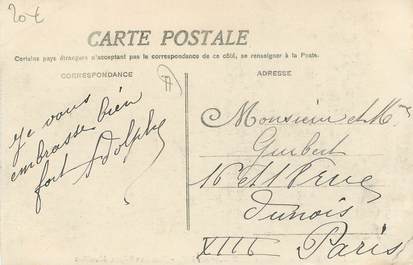 20€
CARTE POSTALE
Certains pays étrangers n'acceptant pas la correspondance de ce côté, se renseigner à la Poste.
CORRESPONDANCE
ADRESSE
#
Je vous
embrasse bien
fort Adolphe
Monsieur et Mme
Guibert
16 et 18 rue
Dunois
XIIIe Paris